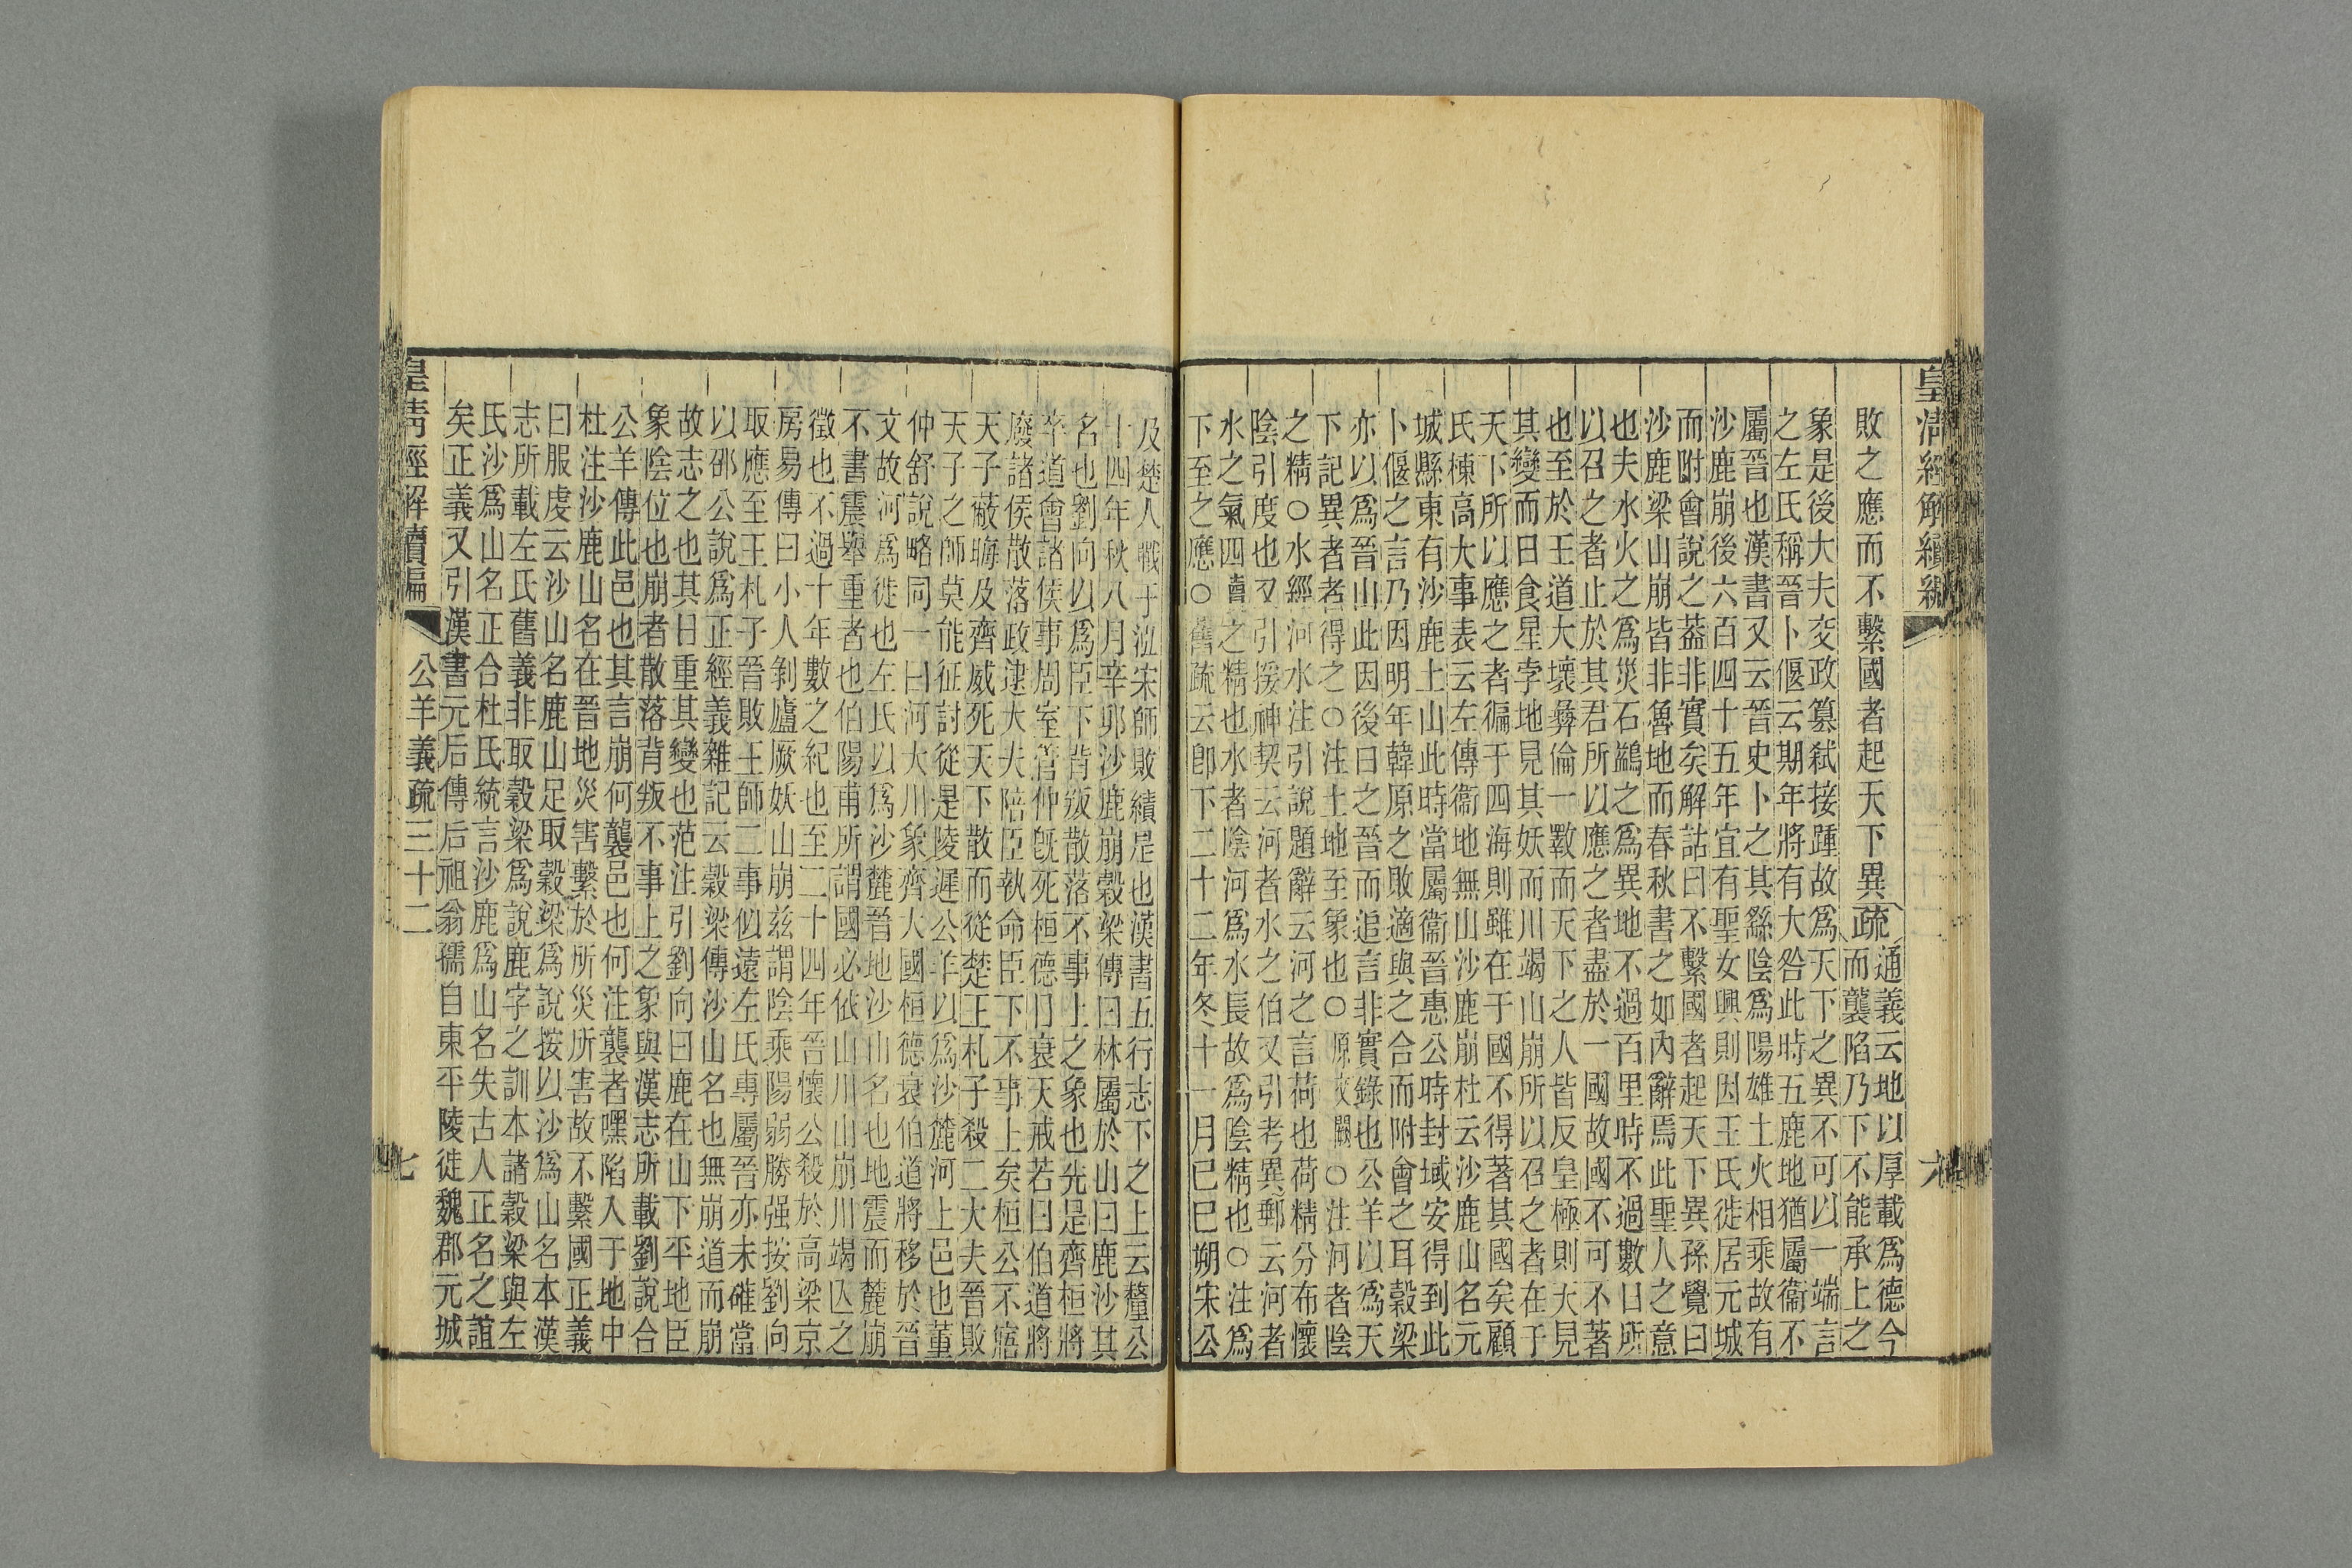 皇清經解續編
六
敗之應而不繫國者起天下異疏
通義云地以厚載爲德今
而襲陷乃下不能承上之
象是後大夫交政篡弒接踵故爲天下之異不可以一端言
之左氏稱晉卜偃云期年將有大咎此時五鹿地猶屬衞不
屬晉也漢書又云晉史卜之其繇陰爲陽雄土火相乘故有
沙鹿崩後六百四十五年宜有聖女興則因王氏徙居元城
而附會說之葢非實矣解詁曰不繫國者起天下異孫覺曰
沙鹿梁山崩皆非魯地而春秋書之如內辭焉此聖人之意
也夫水火之爲災石鷁之爲異地不過百里時不過數日所
以召之者止於其君所以應之者盡於一國故國不可不著
也至於王道大壞彝倫一斁而天下之人皆反皇極則天見
其變而日食星孛地見其妖而川竭山崩所以召之者在于
天下所以應之者徧于四海則雖在于國不得著其國矣顧
氏棟高大事表云左傳衞地無山沙鹿崩杜云沙鹿山名元
城縣東有沙鹿土山此時當屬衞晉惠公時封域安得到此
卜偃之言乃因明年韓原之敗適與之合而附會之耳穀梁
亦以爲晉山此因後日之晉而追言非實錄也公羊以爲天
下記異者者得之○注土地至象也○原文闕○注河者陰
之精○水經河水注引說題辭云河之言荷也荷精分布懷
陰引度也又引援神契云河者水之伯又引考異郵云河者
水之氣四瀆之精也水者陰河爲水長故爲陰精也○注爲
下至之應○舊疏云卽下二十二年冬十一月己巳朔宋公
及楚人戰于泓宋師敗績是也漢書五行志下之上云釐公
十四年秋八月辛卯沙鹿崩穀梁傳曰林屬於山曰鹿沙其
名也劉向以爲臣下背叛散落不事上之象也先是齊桓將
卒道會諸侯事周室管仲旣死桓德日衰天戒若曰伯道將
廢諸侯散落政逮大夫陪臣執命臣下不事上矣桓公不寤
天子蔽晦及齊威死天下散而從楚王札子殺二大夫晉敗
天子之師莫能征討從是陵遲公羊以爲沙麓河上邑也董
仲舒說略同一曰河大川象齊大國桓德衰伯道將移於晉
文故河爲徙也左氏以爲沙麓晉地沙山名也地震而麓崩
不書震舉重者也伯陽甫所謂國必依山川山崩川竭亾之
徵也不過十年數之紀也至二十四年晉懷公殺於高梁京
房易傳曰小人剝廬厥妖山崩茲謂陰乘陽弱勝强按劉向
取應至王札子晉敗王師二事似遠左氏專屬晉亦未確當
以邵公說爲正經義雜記云穀梁傳沙山名也無崩道而崩
故志之也其日重其變也范注引劉向曰鹿在山下平地臣
象陰位也崩者散落背叛不事上之象與漢志所載劉說合
公羊傳此邑也其言崩何襲邑也何注襲者嘿陷入于地中
杜注沙鹿山名在晉地災害繫於所災所害故不繫國正義
曰服虔云沙山名鹿山足取穀梁爲說按以沙爲山名本漢
志所載左氏舊義非取穀梁爲說鹿字之訓本諸穀梁與左
氏沙爲山名正合杜氏統言沙鹿爲山名失古人正名之誼
矣正義又引漢書元后傳后祖翁孺自東平陵徙魏郡元城
皇清經解續編
公羊義疏三十二
七